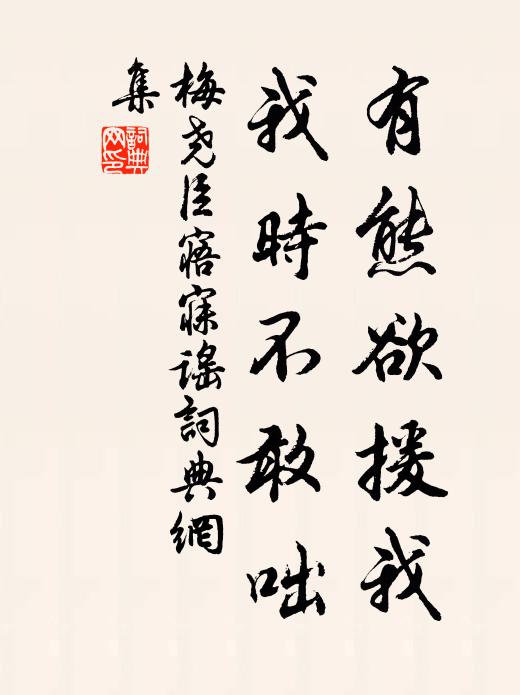 有熊欲援我
我時不敢咄
梅尧臣寤寐謠詞典網
集
詞典網印